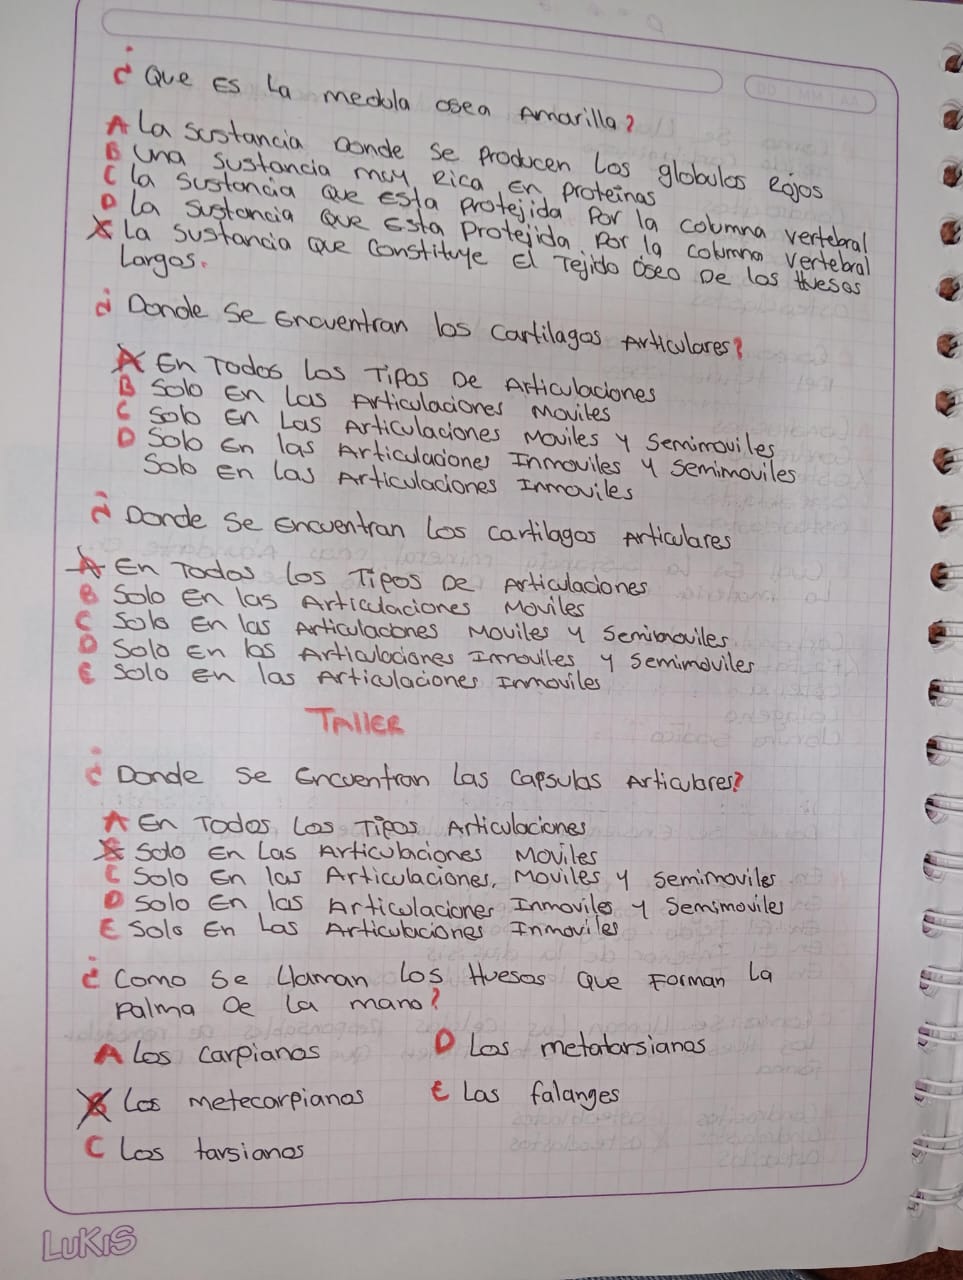 ¿Que Es La medula osea Amarilla?
A La sustancia Donde se Producen Los globulos Rojos
B Una sustancia muy Rica En proteinas
C la sustancia Que Esta Protejida Por la columna vertebral
D la sustancia Que Esta Protejida Por la columna vertebral
X La sustancia Que Constituye El Tejido Óseo De los Huesos
Largos.
¿Donde Se Encuentran los Cartilagos Articulares?
A En Todos Los Tipos De Articulaciones
B Solo En Las Articulaciones Moviles
C Solo En Las Articulaciones Moviles y Semimoviles
D Solo En las Articulaciones Inmoviles y Semimoviles
Solo En Las Articulaciones Inmoviles
¿Donde Se Encuentran Los Cartilagos Articulares
A En Todos los Tipos De Articulaciones
B Solo En las Articulaciones Moviles
C Solo En las Articulaciones Moviles y Semimoviles
D Solo En las Articulaciones Inmoviles y Semimoviles
E Solo en las Articulaciones Inmoviles
TALLER
¿Donde Se Encuentran Las Capsulas Articulares?
A En Todos Los Tipos Articulaciones
B Solo En Las Articulaciones Moviles
C Solo En las Articulaciones, Moviles y Semimoviles
D Solo En las Articulaciones Inmoviles y Semimoviles
E Solo En Las Articulaciones Inmoviles
¿Como Se Llaman Los Huesos Que Forman La
Palma De La mano?
A los Carpianos
D Los metatarsianos
B Los metecarpianos
E Las falanges
C Los tarsianos
LUKIS